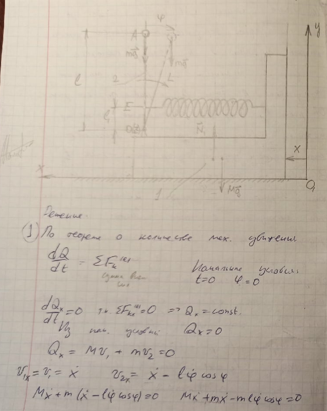 φ
y
l
E
N̄
x
x
1
Mg
O
Решение
① По теореме о количестве мех. движения
dQ̄/dt = ΣF̄ₖ⁽ᵉ⁾
Начальные условия
t=0 φ=0
dQₓ/dt = 0 т.к. ΣFₖₓ⁽ᵉ⁾ = 0 => Qₓ = const.
Из нач. условий Qₓ = 0
Qₓ = MV₁ + mV₂ = 0
V₁ₓ = V₁ = ẋ V₂ₓ = ẋ - lφ̇ cosφ
Mẋ + m(ẋ - lφ̇ cosφ) = 0 Mẋ + mẋ - mlφ̇ cosφ = 0